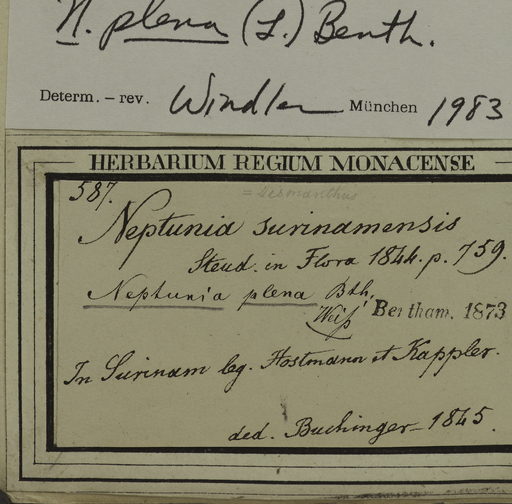 N. plena (L.) Benth.
Determ. – rev. Windler München 1983
HERBARIUM REGIUM MONACENSE
587.
= Desmanthus
Neptunia surinamensis
Steud. in Flora 1844. p. 759.
Neptunia plena Bth.
Bentham. 1873
In Surinam leg. Hostmann et Kappler.
ded. Buchinger – 1845.